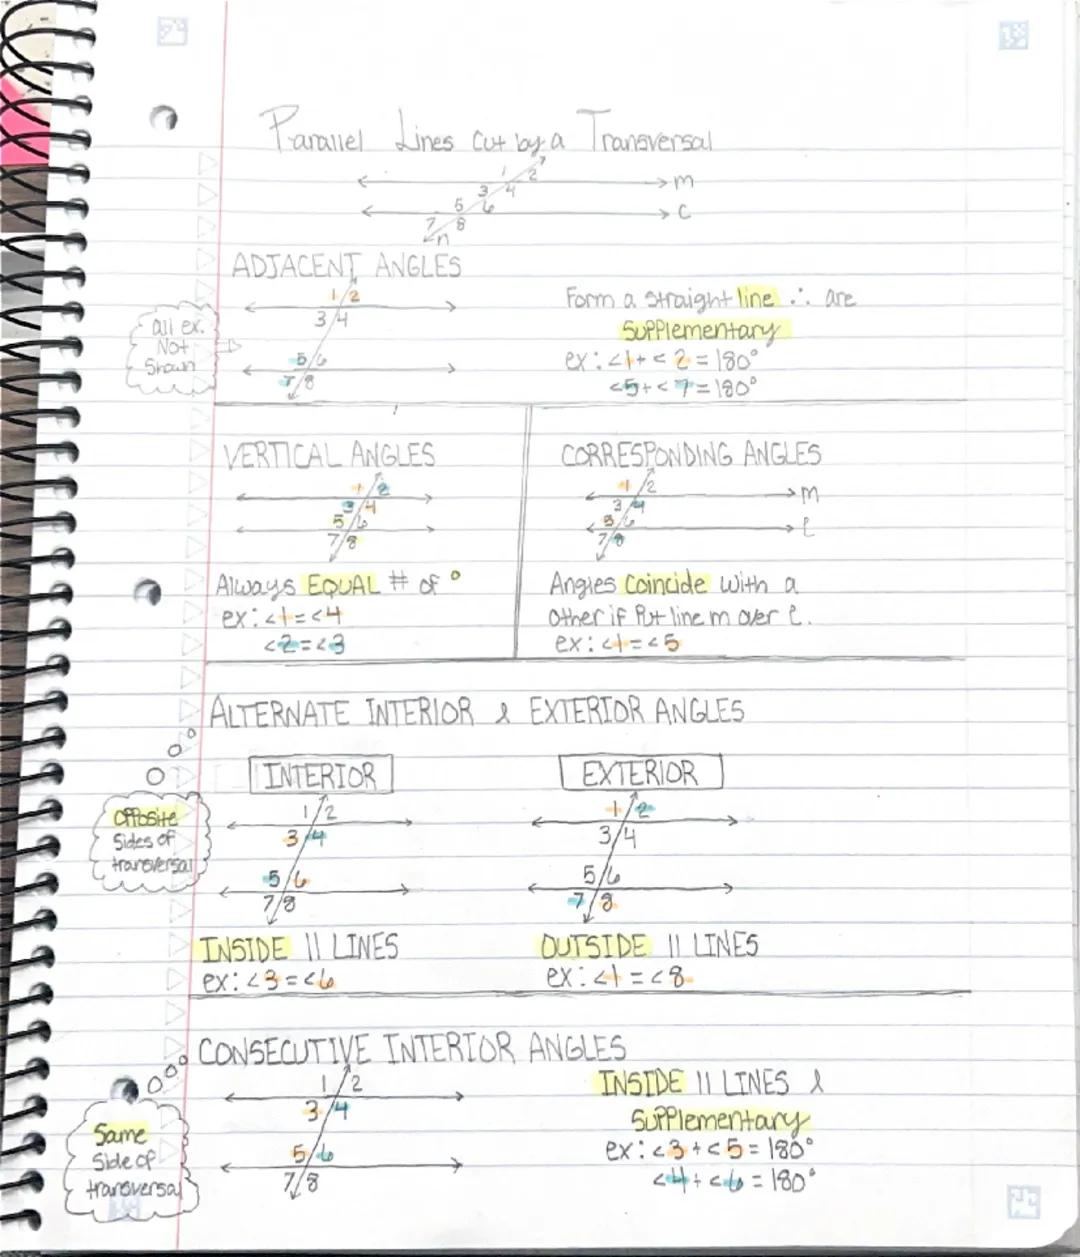 Parallel Lines Cut by a Transversal
1 2
3 4 m
5 6 c
7 8
n
ADJACENT ANGLES
1 2
3 4
5 6
7 8
all ex.
Not
Shown
Form a straight line ∴ are
Supplementary
ex: <1 + < 2 = 180°
<5 + < 7 = 180°
VERTICAL ANGLES
1 2
3 4
5 6
7 8
Always EQUAL # of °
ex: <1 = <4
<2 = <3
CORRESPONDING ANGLES
1 2 m
3 4
5 6 l
7 8
Angles Coincide with a
other if Put line m over l.
ex: <1 = <5
ALTERNATE INTERIOR & EXTERIOR ANGLES
Opposite
Sides of
transversal
INTERIOR
1 2
3 4
5 6
7 8
INSIDE || LINES
ex: <3 = <6
EXTERIOR
1 2
3 4
5 6
7 8
OUTSIDE || LINES
ex: <1 = <8
CONSECUTIVE INTERIOR ANGLES
Same
Side of
transversal
1 2
3 4
5 6
7 8
INSIDE || LINES &
Supplementary
ex: <3 + <5 = 180°
<4 + <6 = 180°